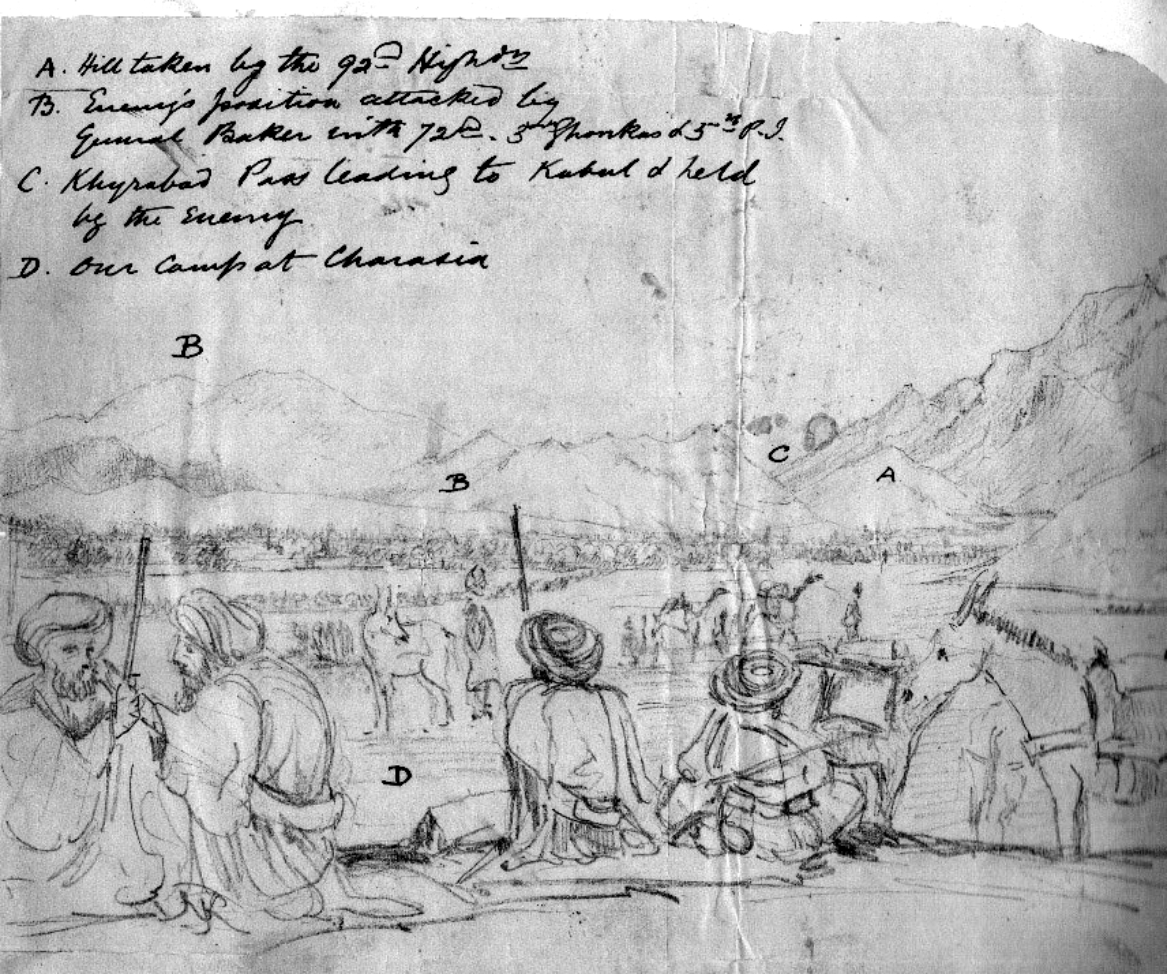 A. Hill taken by the 92nd Highdrs
B. Enemy's position attacked by
General Baker with 72nd. 5th Ghoorkas & 5th P.I.
C. Khyrabad Pass leading to Kabul & held
by the Enemy
D. Our Camp at Charasia
B
C
A
B
D